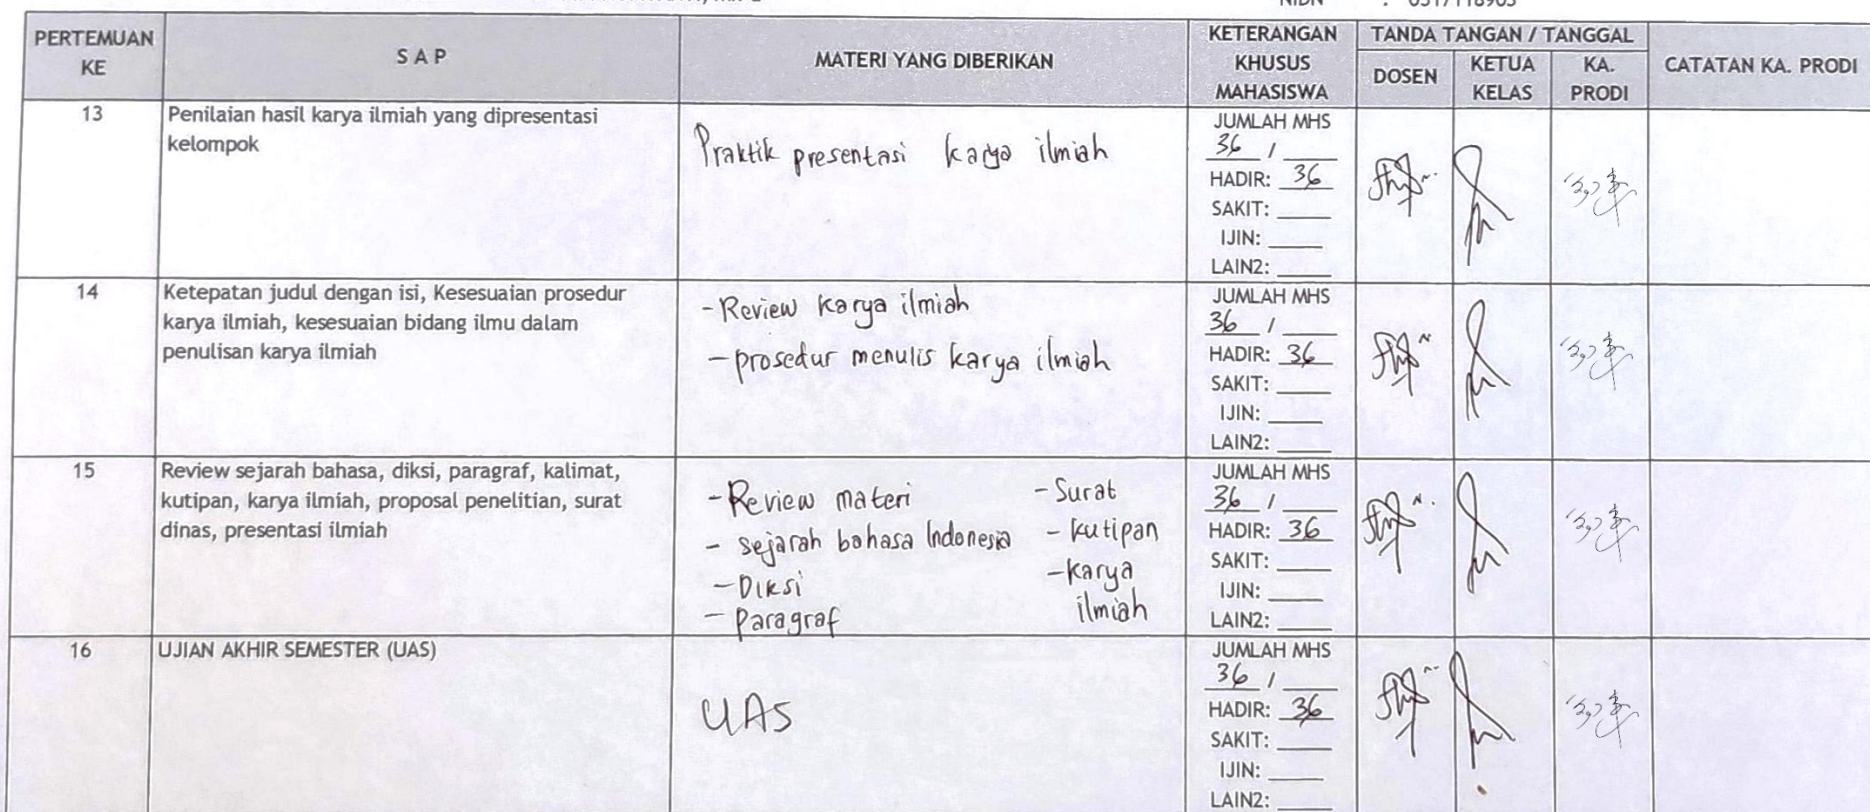 NIDN : 0317118903
PERTEMUAN KE
S A P
MATERI YANG DIBERIKAN
KETERANGAN KHUSUS MAHASISWA
TANDA TANGAN / TANGGAL
DOSEN
KETUA KELAS
KA. PRODI
CATATAN KA. PRODI
13
Penilaian hasil karya ilmiah yang dipresentasi
kelompok
Praktik presentasi karya ilmiah
JUMLAH MHS
36 / ____
HADIR: 36
SAKIT: ____
IJIN: ____
LAIN2: ____
14
Ketepatan judul dengan isi, Kesesuaian prosedur
karya ilmiah, kesesuaian bidang ilmu dalam
penulisan karya ilmiah
- Review karya ilmiah
- prosedur menulis karya ilmiah
JUMLAH MHS
36 / ____
HADIR: 36
SAKIT: ____
IJIN: ____
LAIN2: ____
15
Review sejarah bahasa, diksi, paragraf, kalimat,
kutipan, karya ilmiah, proposal penelitian, surat
dinas, presentasi ilmiah
- Review materi
- sejarah bahasa Indonesia
- Diksi
- Paragraf
- Surat
- kutipan
- karya
ilmiah
JUMLAH MHS
36 / ____
HADIR: 36
SAKIT: ____
IJIN: ____
LAIN2: ____
16
UJIAN AKHIR SEMESTER (UAS)
UAS
JUMLAH MHS
36 / ____
HADIR: 36
SAKIT: ____
IJIN: ____
LAIN2: ____